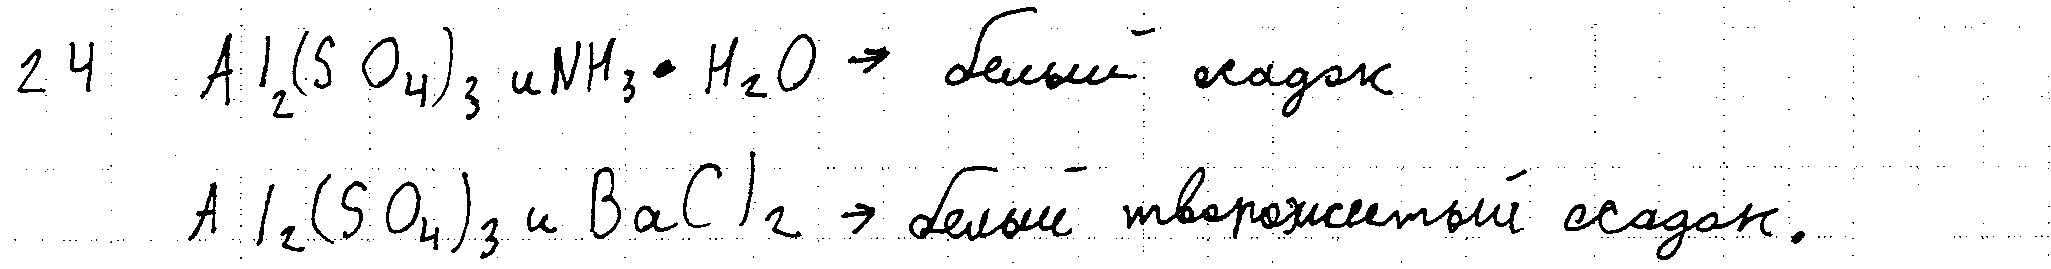 24 Al₂(SO₄)₃ и NH₃ • H₂O → белый осадок
Al₂(SO₄)₃ и BaCl₂ → белый творожистый осадок.